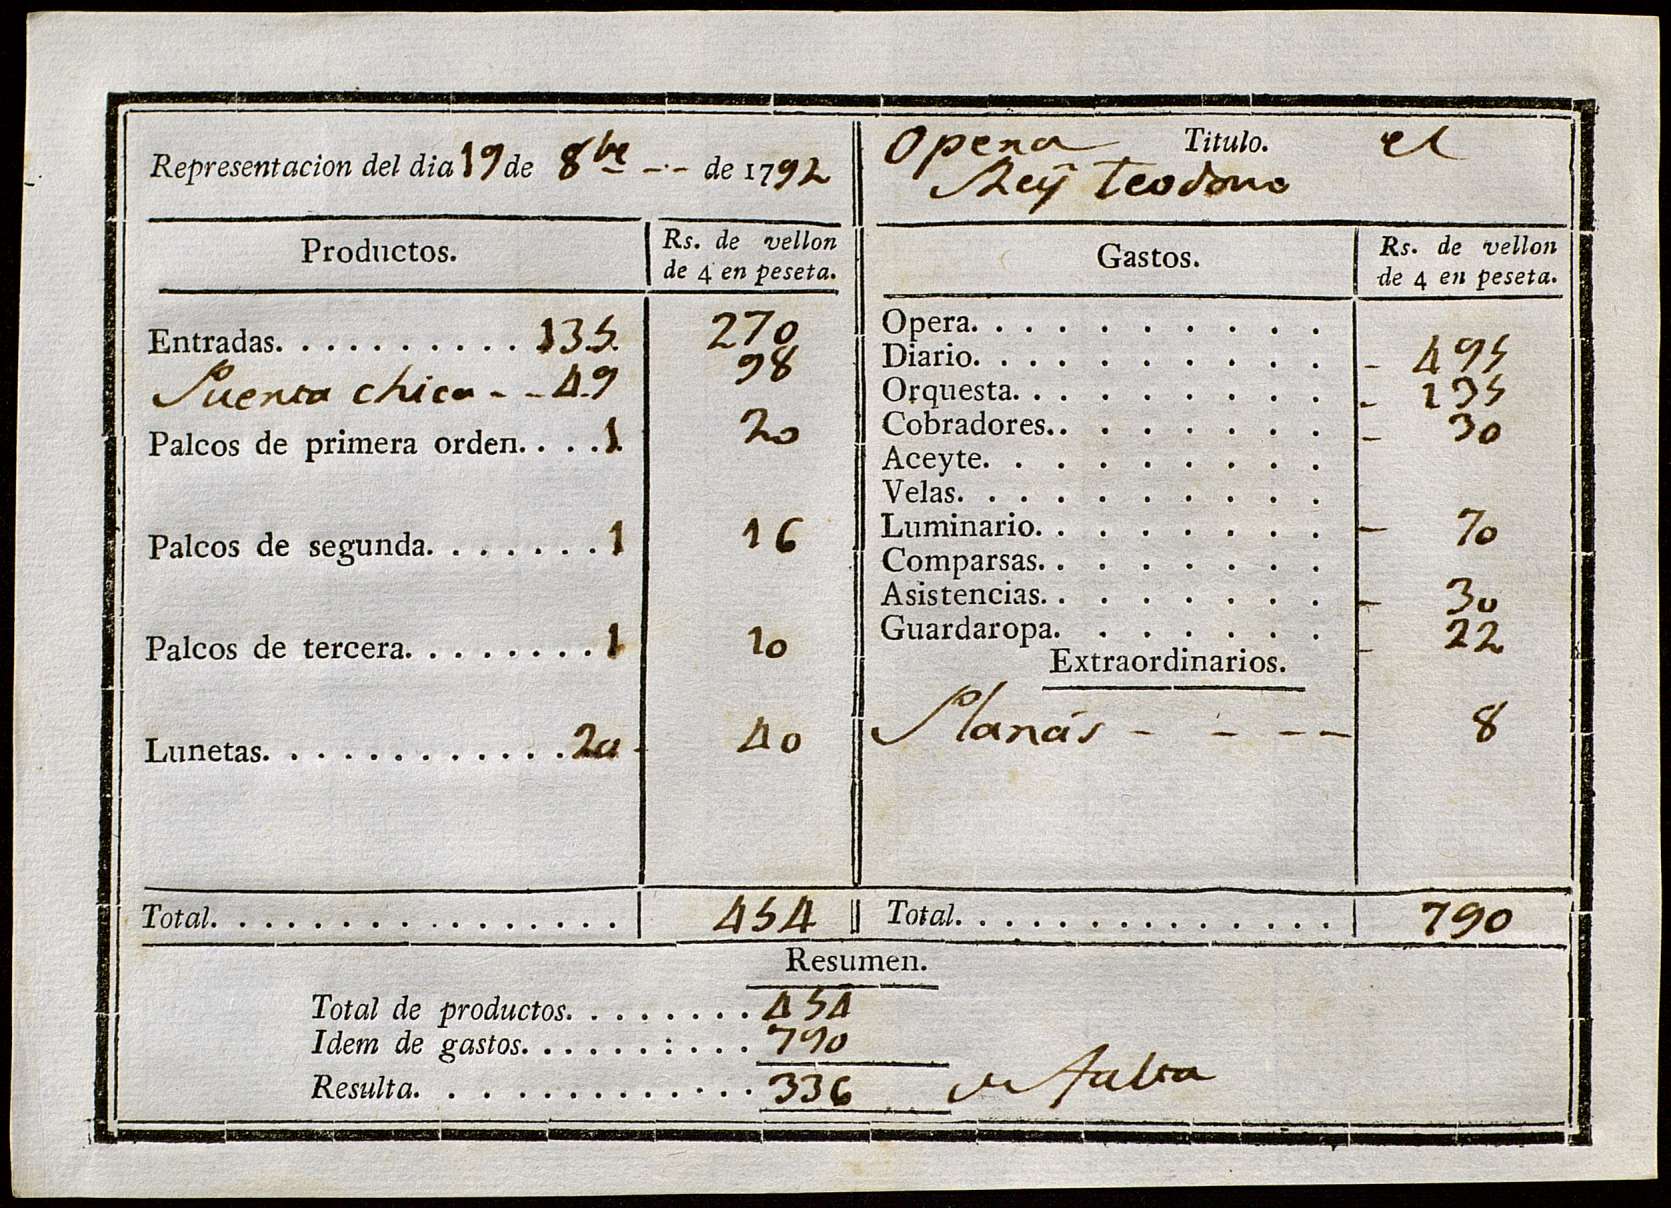 Representacion del dia 19 de 8bre -.- de 1792
Opera Titulo. el
Rey Teodoro
Productos.
Rs. de vellon
de 4 en peseta.
Entradas. . . . . . . . . . 135. 270
Puerta chica - - 49 98
Palcos de primera orden. . . . 1 20
Palcos de segunda. . . . . . . 1 16
Palcos de tercera. . . . . . . . 1 10
Lunetas. . . . . . . . . . . . 20 - 40
Total. . . . . . . . . . . . . . . . 454
Gastos.
Rs. de vellon
de 4 en peseta.
Opera. . . . . . . . . .
Diario. . . . . . . . . . - 495
Orquesta. . . . . . . . . - 135
Cobradores. . . . . . . . - 30
Aceyte. . . . . . . . . .
Velas. . . . . . . . . .
Luminario. . . . . . . . - 70
Comparsas. . . . . . . .
Asistencias. . . . . . . . - 30
Guardaropa. . . . . . . - 22
Extraordinarios.
Planás - - - - 8
Total. . . . . . . . . . . . . . 790
Resumen.
Total de productos. . . . . . . . 454
Idem de gastos. . . . . . : . . . 790
Resulta. . . . . . . . . . . . 336 de falta